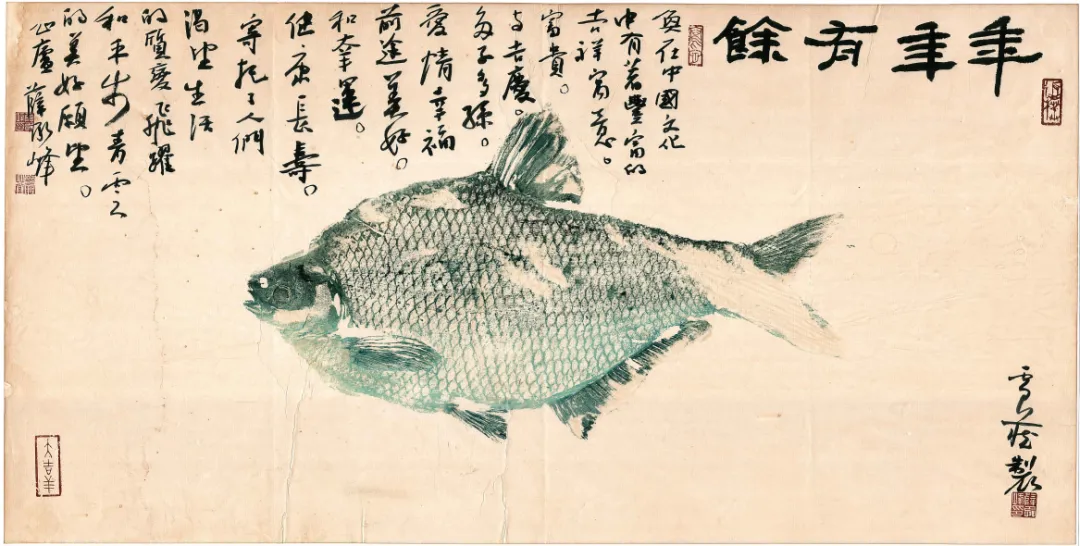 年年有餘
魚在中國文化
中有著豐富的
吉祥寓意。
富貴。
与吉慶。
多子多孫。
愛情幸福
前途美好。
和幸運。
健康長壽。
寄托了人們
渴望生活
的質變飛躍
和平步青雲
的美好願望。
薛
峰
雪
製
大吉羊